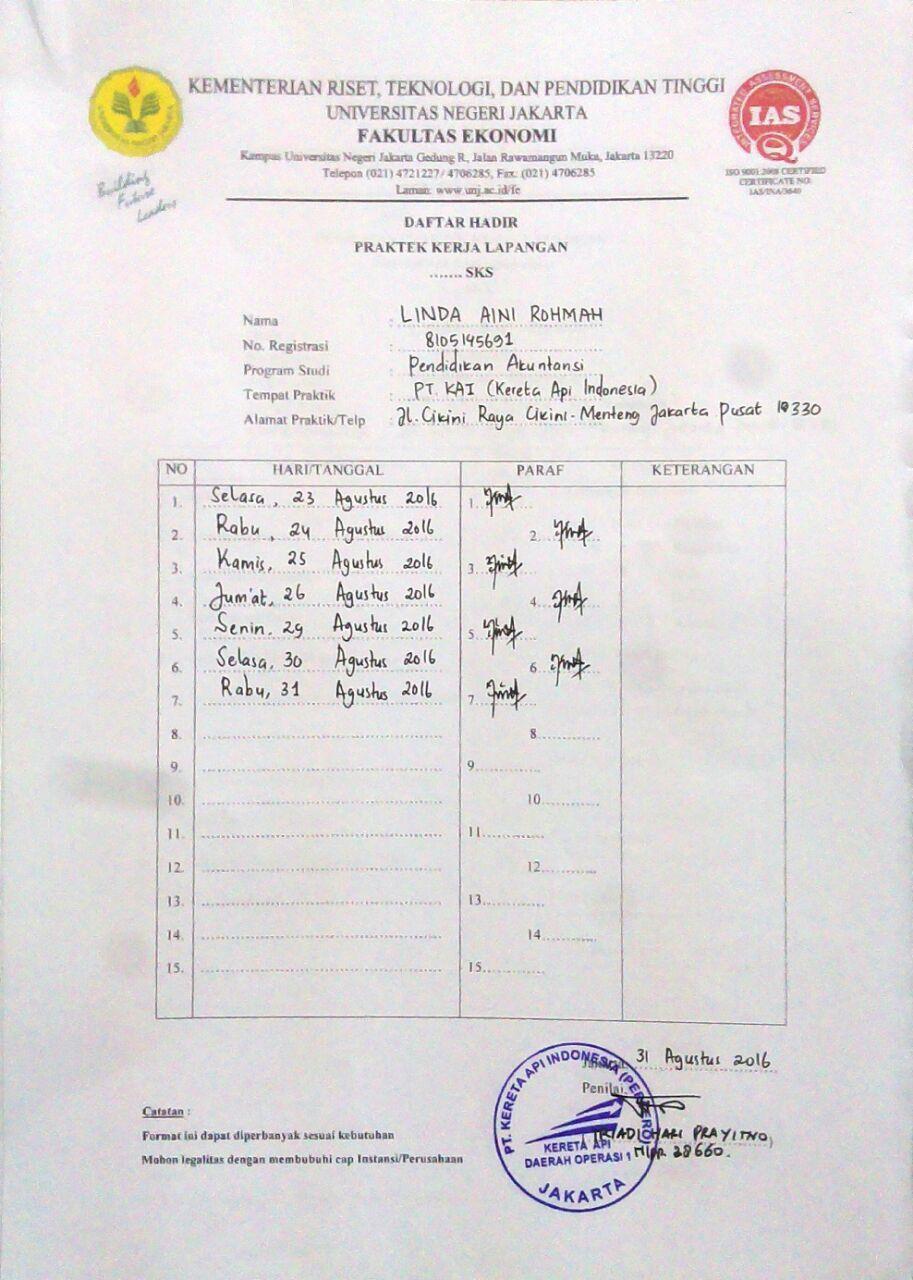 KEMENTERIAN RISET, TEKNOLOGI, DAN PENDIDIKAN TINGGI
UNIVERSITAS NEGERI JAKARTA
FAKULTAS EKONOMI
Kampus Universitas Negeri Jakarta Gedung R, Jalan Rawamangun Muka, Jakarta 13220
Telepon (021) 4721227/ 4706285, Fax: (021) 4706285
Laman: www.unj.ac.id/fe
Building
Future
Leaders
INTEGRATED ASSESSMENT SERVICES
IAS
ISO 9001:2008 CERTIFIED
CERTIFICATE NO:
IAS/INA/3640
DAFTAR HADIR
PRAKTEK KERJA LAPANGAN
....... SKS
Nama : LINDA AINI ROHMAH
No. Registrasi : 8105145691
Program Studi : Pendidikan Akuntansi
Tempat Praktik : PT. KAI (Kereta Api Indonesia)
Alamat Praktik/Telp : Jl. Cikini Raya Cikini-Menteng Jakarta Pusat 10330
NO HARI/TANGGAL PARAF KETERANGAN
1. Selasa, 23 Agustus 2016 1.
2. Rabu, 24 Agustus 2016 2.
3. Kamis, 25 Agustus 2016 3.
4. Jum'at, 26 Agustus 2016 4.
5. Senin, 29 Agustus 2016 5.
6. Selasa, 30 Agustus 2016 6.
7. Rabu, 31 Agustus 2016 7.
8. 8.
9. 9.
10. 10.
11. 11.
12. 12.
13. 13.
14. 14.
15. 15.
31 Agustus 2016
Penilai,
PT. KERETA API INDONESIA (PERSERO)
KERETA API
DAERAH OPERASI 1
JAKARTA
(TRIADI HARI PRAYITNO)
Nipp. 38660.
Catatan :
Format ini dapat diperbanyak sesuai kebutuhan
Mohon legalitas dengan membubuhi cap Instansi/Perusahaan